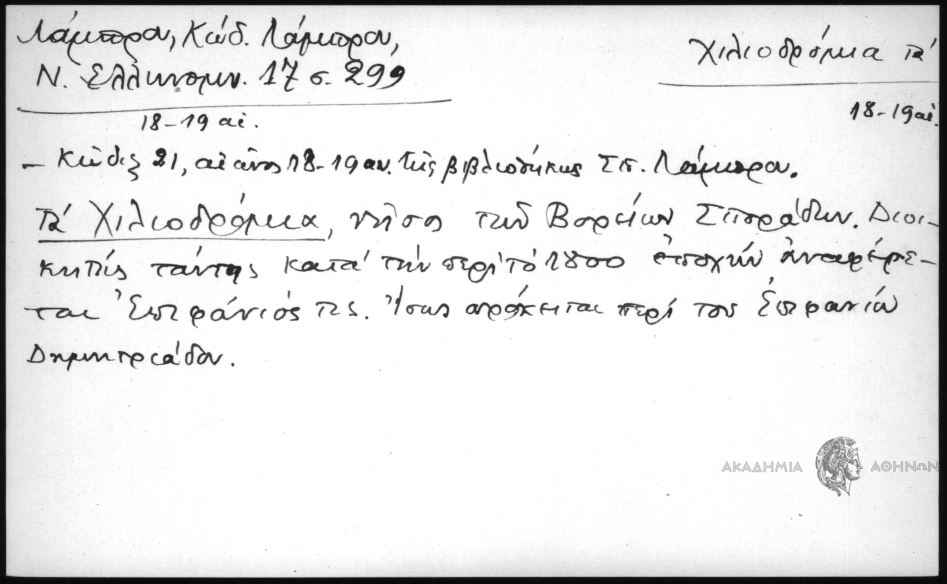 Λάμπρου, Κώδ. Λάμπρου,
Ν. Ελληνομν. 17 σ. 299
Χιλιοδρόμια τά
18-19 αἰ.
18-19 αἰ.
- Κώδιξ 21, αἰῶνος 18-19 αι. τῆς βιβλιοθήκης Σπ. Λάμπρου.
Τά Χιλιοδρόμια, νῆσος τῶν Βορείων Σποράδων. Διοι-
κητής ταύτης κατά τήν περί τό 1800 ἐποχήν ἀναφέρε-
ται Ἐπιφάνιός τις. Ἴσως πρόκειται περί του Ἐπιφανίου
Δημητριάδου.
ΑΚΑΔΗΜΙΑ ΑΘΗΝΩΝ